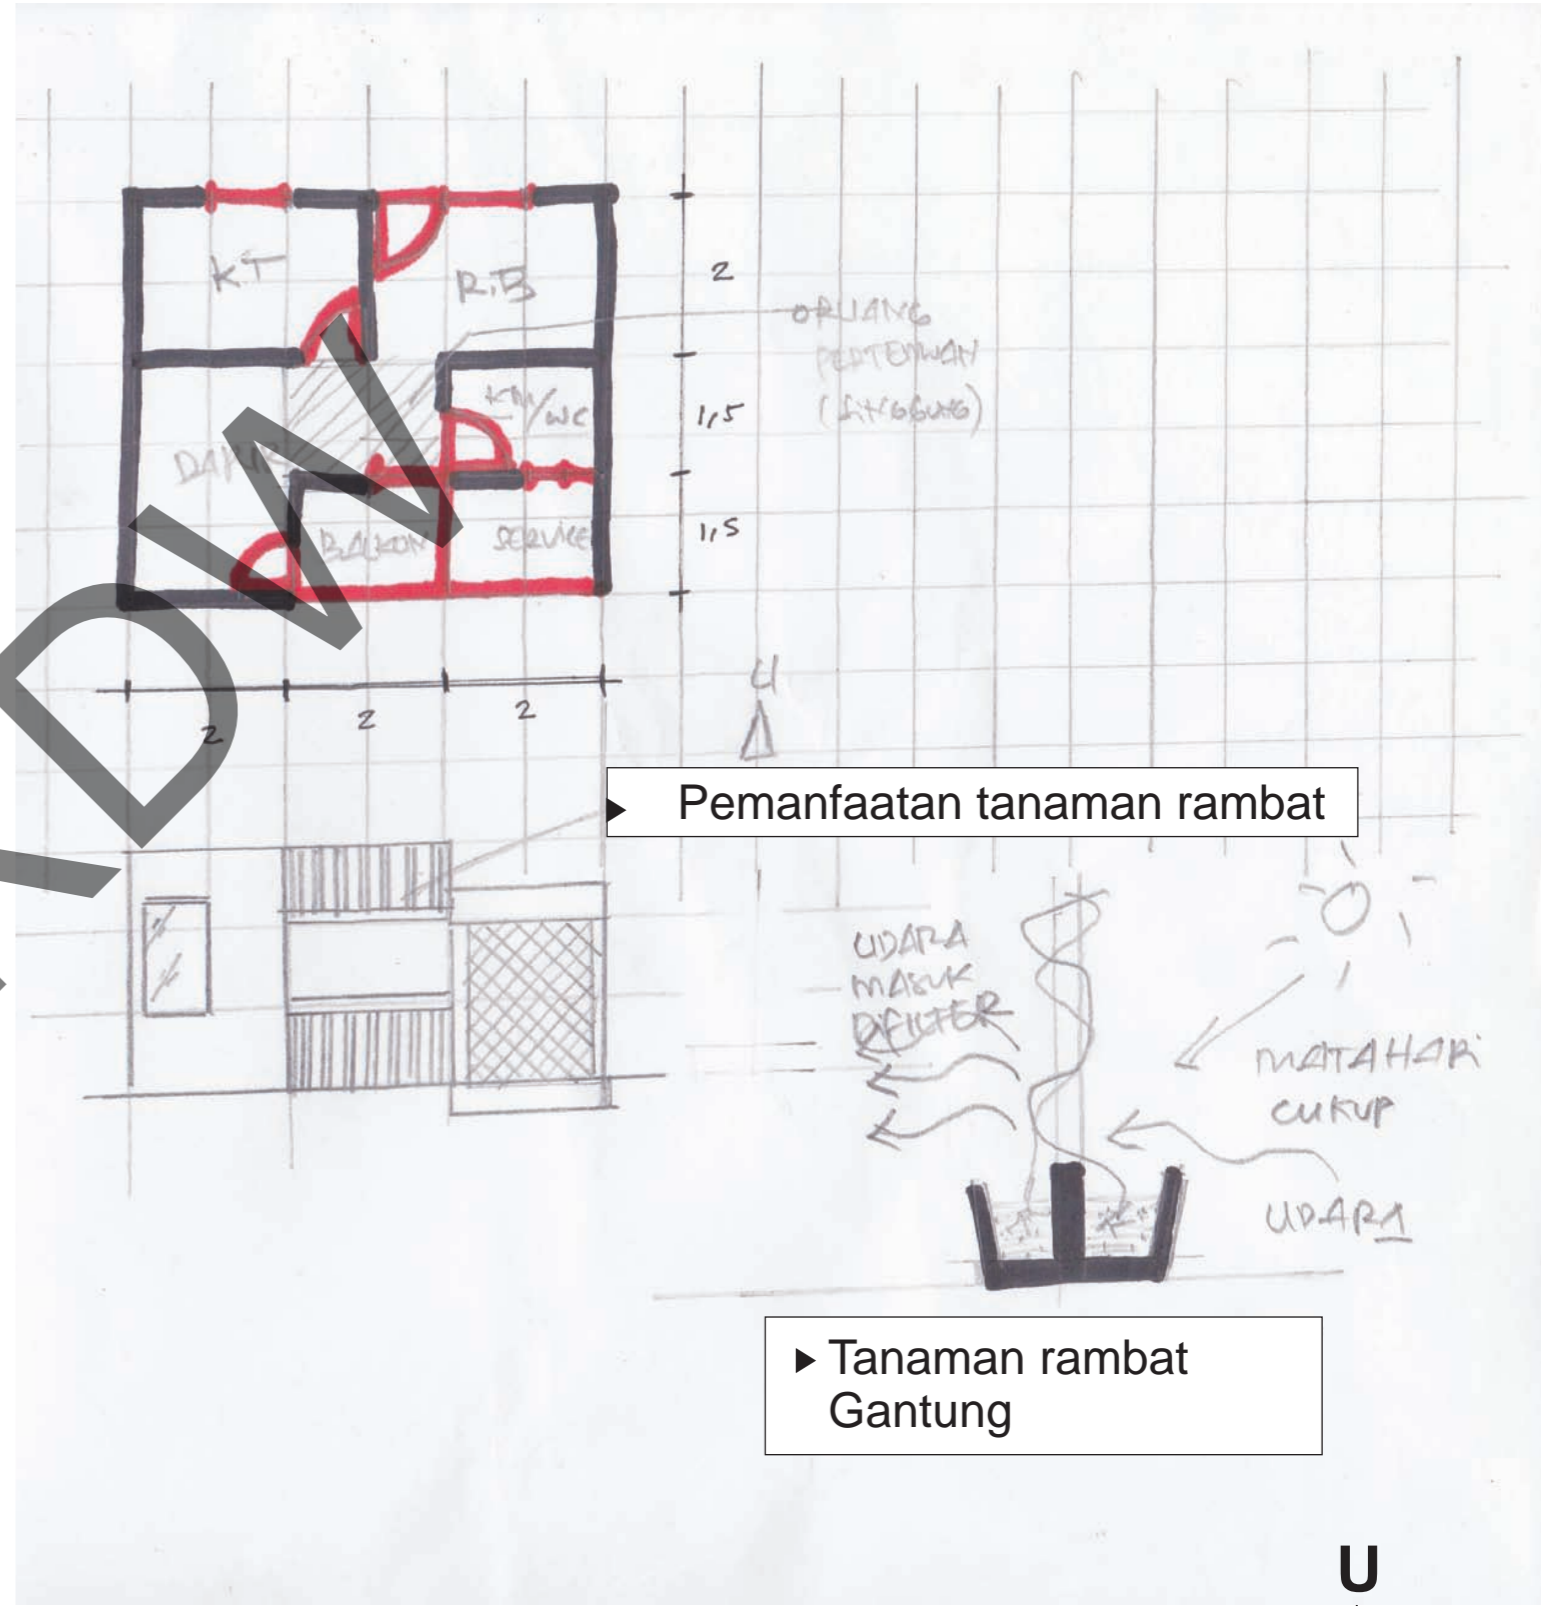 K.T
R.B
2
ORUANG
PERTEMUAN
(SINGGUNG)
KM/WC
1,5
DAPUR
BALKON
SERVICE
1,5
2
2
2
U
Pemanfaatan tanaman rambat
UDARA
MASUK
DIFILTER
MATAHARI
CUKUP
UDARA
Tanaman rambat
Gantung
U
DW